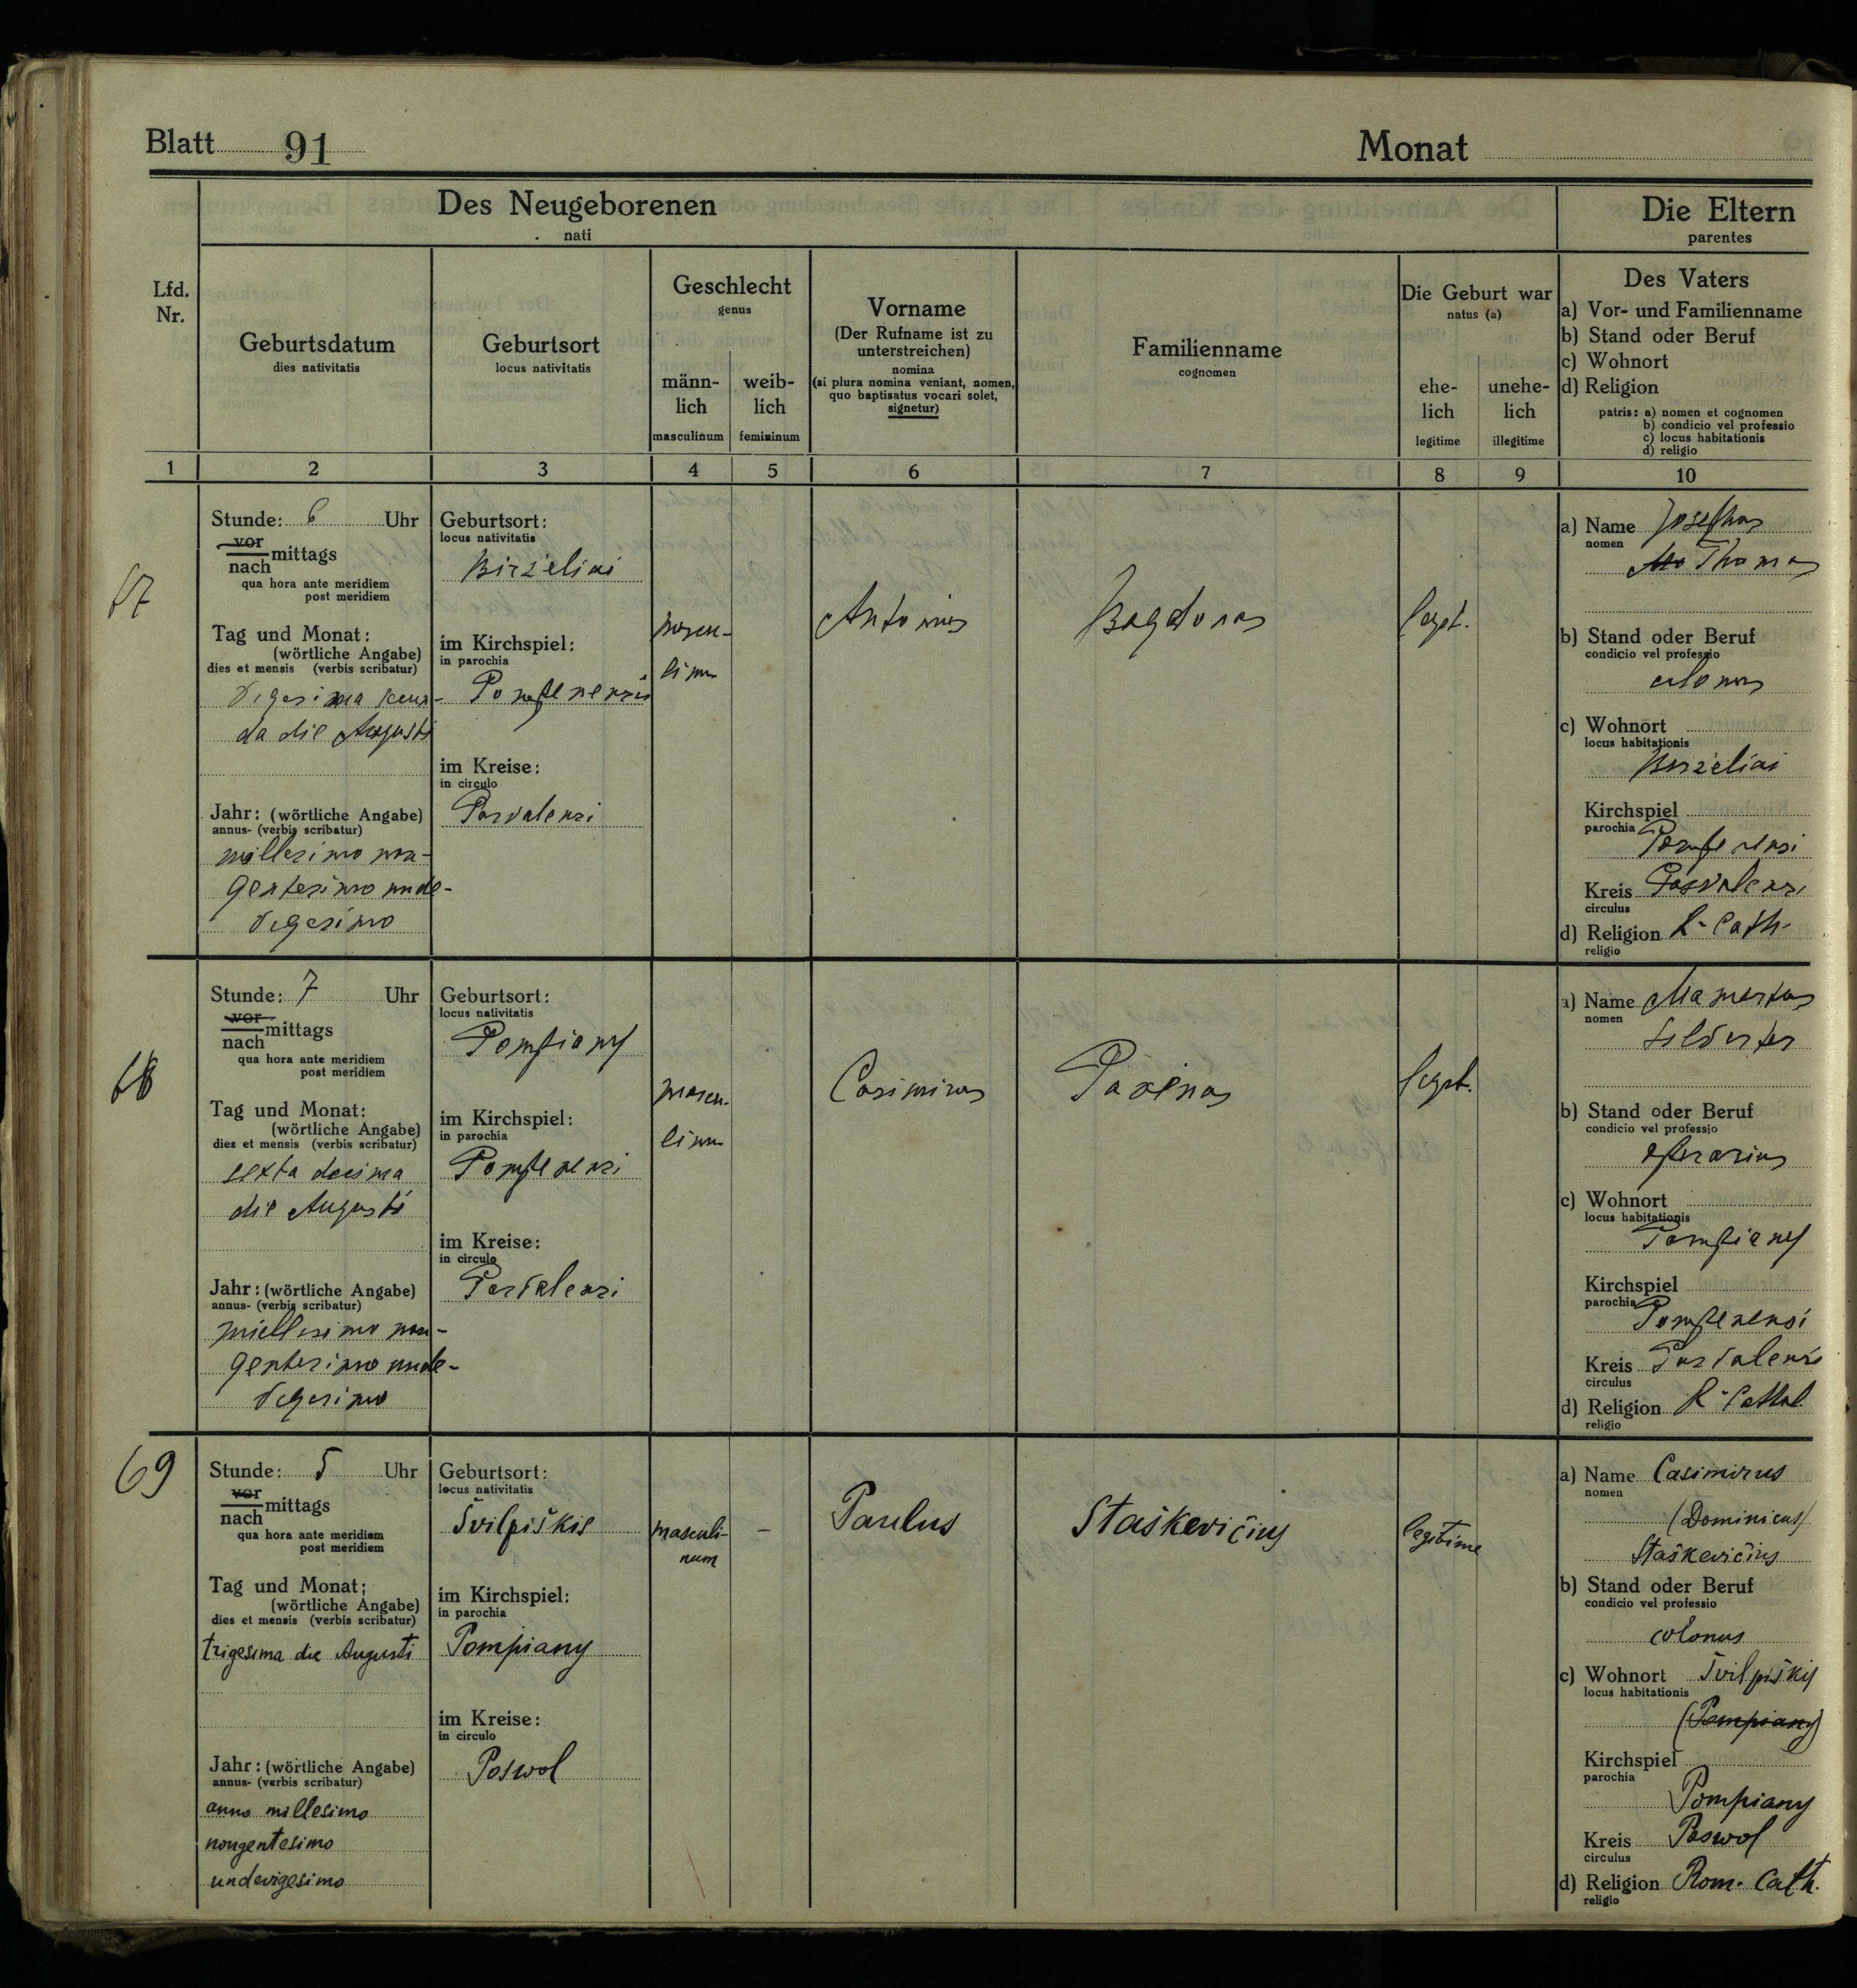 Blatt 91
Monat
Des Neugeborenen
nati
Die Eltern
parentes
Lfd.
Nr.
Geburtsdatum
dies nativitatis
Geburtsort
locus nativitatis
Geschlecht
genus
männ-
lich
masculinum
weib-
lich
femininum
Vorname
(Der Rufname ist zu
unterstreichen)
nomina
(si plura nomina veniant, nomen,
quo baptisatus vocari solet,
signetur)
Familienname
cognomen
Die Geburt war
natus (a)
ehe-
lich
legitime
unehe-
lich
illegitime
Des Vaters
a) Vor- und Familienname
b) Stand oder Beruf
c) Wohnort
d) Religion
patris: a) nomen et cognomen
b) condicio vel professio
c) locus habitationis
d) religio
1 2 3 4 5 6 7 8 9 10
67
Stunde: 6 Uhr
vor
nach mittags
qua hora ante meridiem
post meridiem
Tag und Monat:
(wörtliche Angabe)
dies et mensis (verbis scribatur)
Vigesima secun-
da die Augusti
Jahr: (wörtliche Angabe)
annus- (verbis scribatur)
millesimo non-
gentesimo unde-
vigesimo
Geburtsort:
locus nativitatis
Birželiai
im Kirchspiel:
in parochia
Pompenensi
im Kreise:
in circulo
Posvalensi
mascu-
linum
Antonius
Bagdonas
legit.
a) Name Josephus
nomen
Thomas
b) Stand oder Beruf
condicio vel professio
colonus
c) Wohnort
locus habitationis
Birželiai
Kirchspiel
parochia
Pompenensi
Kreis Posvalensi
circulus
d) Religion R. Cath.
religio
68
Stunde: 7 Uhr
vor
nach mittags
qua hora ante meridiem
post meridiem
Tag und Monat:
(wörtliche Angabe)
dies et mensis (verbis scribatur)
sexta decima
die Augusti
Jahr: (wörtliche Angabe)
annus- (verbis scribatur)
millesimo non-
gentesimo unde-
vigesimo
Geburtsort:
locus nativitatis
Pompiany
im Kirchspiel:
in parochia
Pompenensi
im Kreise:
in circulo
Posvalensi
mascu-
linum
Casimirus
legit.
a) Name Mamertus
nomen
Silvester
b) Stand oder Beruf
condicio vel professio
operarius
c) Wohnort
locus habitationis
Pompiany
Kirchspiel
parochia
Pompenensi
Kreis Posvalensi
circulus
d) Religion R. Cathol.
religio
69
Stunde: 5 Uhr
vor
nach mittags
qua hora ante meridiem
post meridiem
Tag und Monat:
(wörtliche Angabe)
dies et mensis (verbis scribatur)
trigesima die Augusti
Jahr: (wörtliche Angabe)
annus- (verbis scribatur)
anno millesimo
nongentesimo
undevigesimo
Geburtsort:
locus nativitatis
Švilpiškis
im Kirchspiel:
in parochia
Pompiany
im Kreise:
in circulo
Poswol
masculi-
num
–
Paulus
Staškevičius
legitime
a) Name Casimirus
nomen
(Dominicus)
Staškevičius
b) Stand oder Beruf
condicio vel professio
colonus
c) Wohnort Švilpiškis
locus habitationis
(Pompiany)
Kirchspiel
parochia
Pompiany
Kreis Poswol
circulus
d) Religion Rom. Cath.
religio